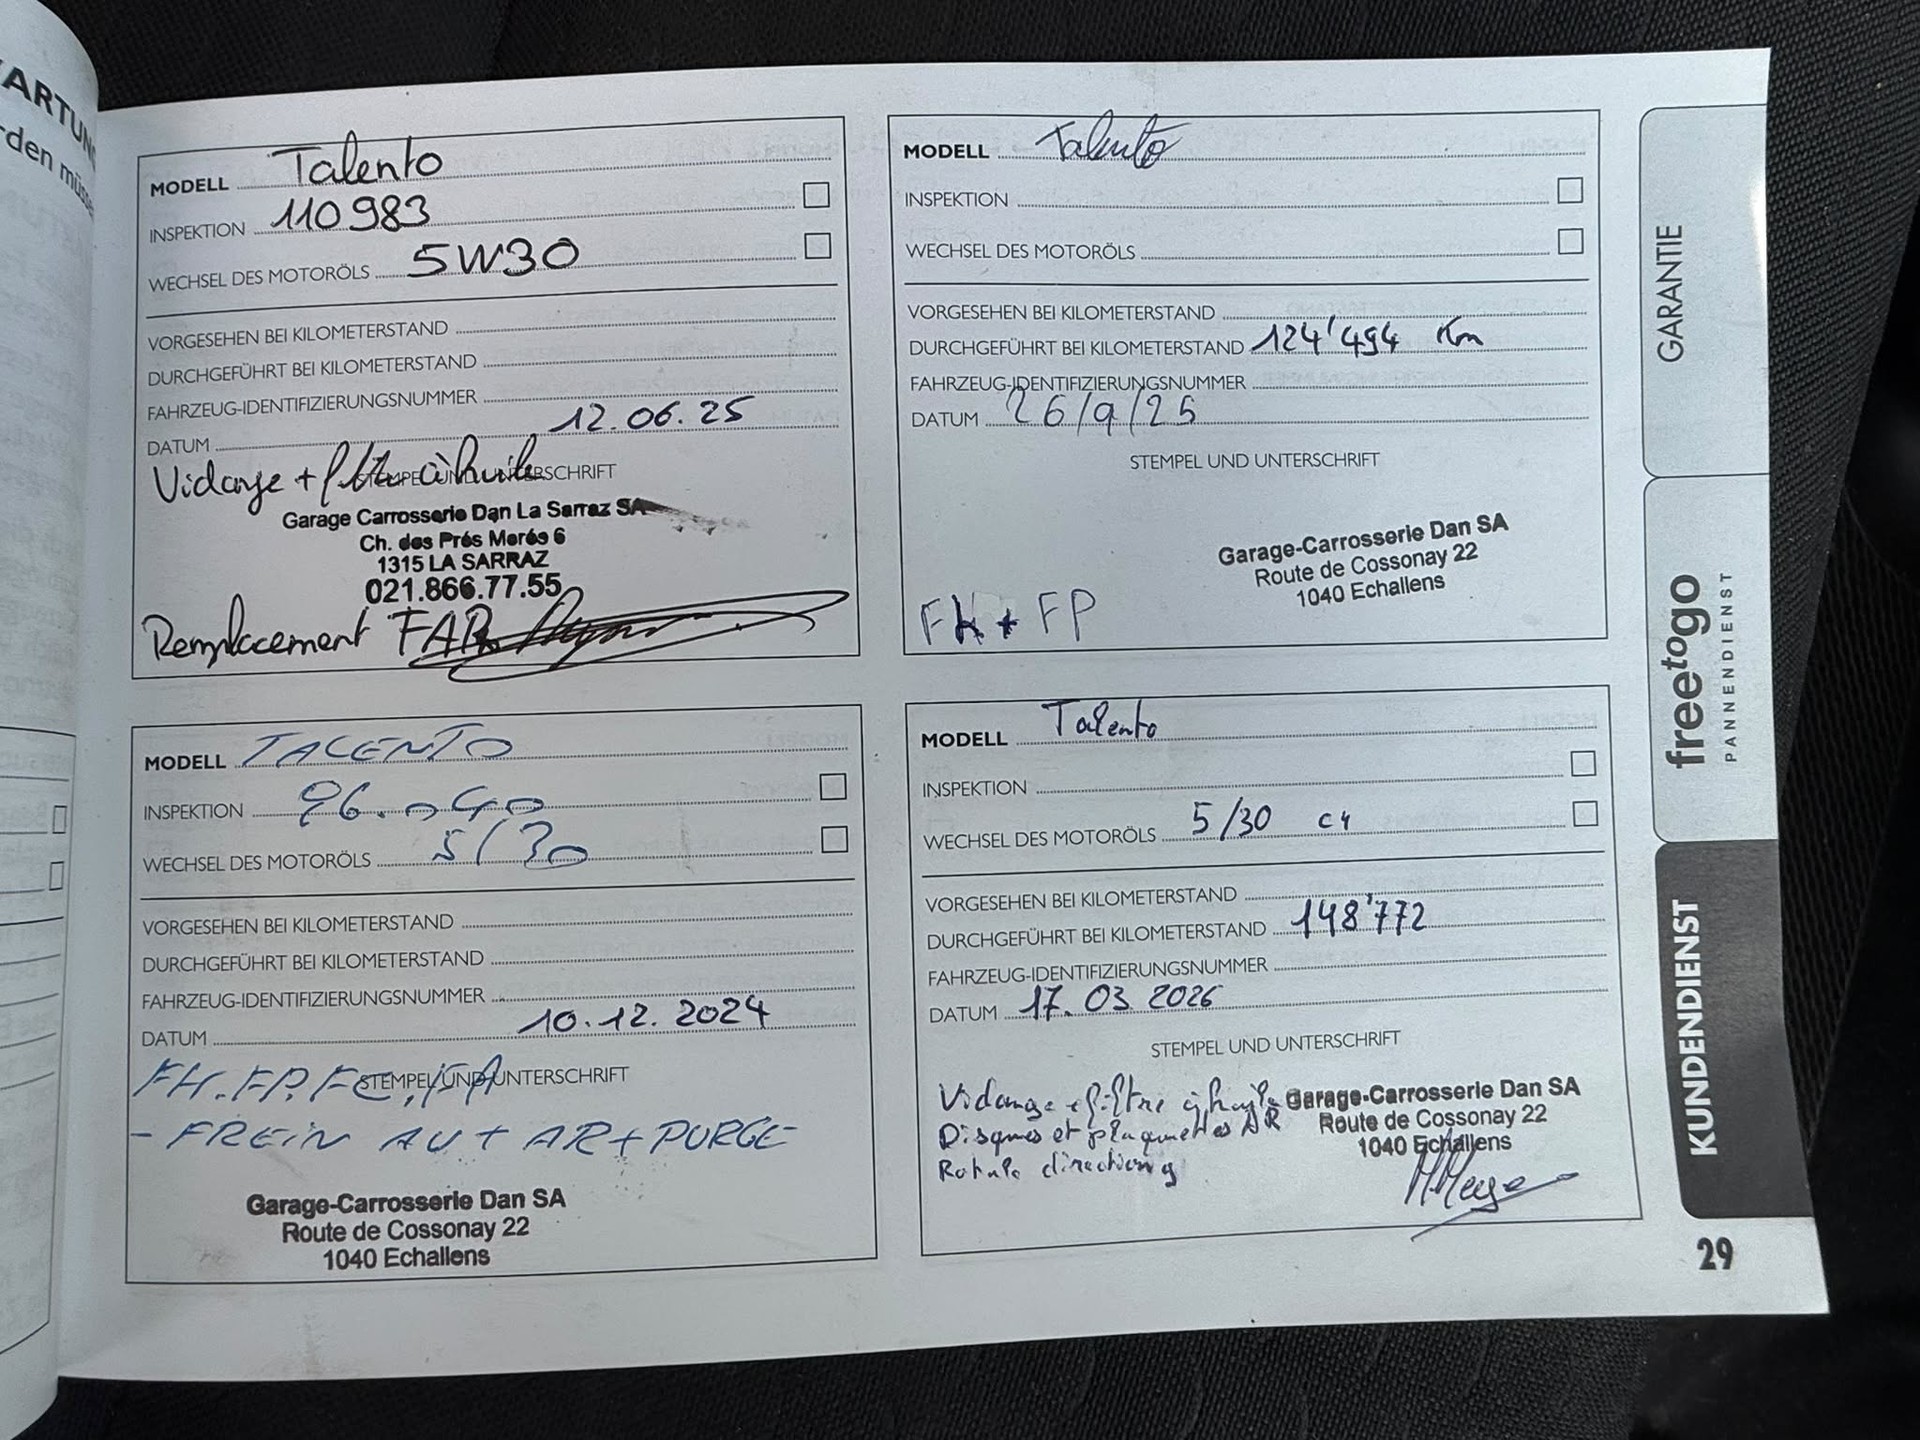 ARTUN
rden müsse
MODELL Talento
INSPEKTION 110983
WECHSEL DES MOTORÖLS 5W30
VORGESEHEN BEI KILOMETERSTAND
DURCHGEFÜHRT BEI KILOMETERSTAND
FAHRZEUG-IDENTIFIZIERUNGSNUMMER
DATUM 12.06.25
STEMPEL UND UNTERSCHRIFT
Vidange + filtre à huile
Garage Carrosserie Dan La Sarraz SA
Ch. des Prés Morés 6
1315 LA SARRAZ
021.866.77.55
Remplacement FAR
MODELL Talento
INSPEKTION
WECHSEL DES MOTORÖLS
VORGESEHEN BEI KILOMETERSTAND
DURCHGEFÜHRT BEI KILOMETERSTAND 124'494 Km
FAHRZEUG-IDENTIFIZIERUNGSNUMMER
DATUM 26/9/25
STEMPEL UND UNTERSCHRIFT
Garage-Carrosserie Dan SA
Route de Cossonay 22
1040 Echallens
FH + FP
MODELL TALENTO
INSPEKTION 96.040
WECHSEL DES MOTORÖLS 5/30
VORGESEHEN BEI KILOMETERSTAND
DURCHGEFÜHRT BEI KILOMETERSTAND
FAHRZEUG-IDENTIFIZIERUNGSNUMMER
DATUM 10.12.2024
STEMPEL UND UNTERSCHRIFT
FH. FP. FC, FA
- FREIN AV + AR + PURGE
Garage-Carrosserie Dan SA
Route de Cossonay 22
1040 Echallens
MODELL Talento
INSPEKTION
WECHSEL DES MOTORÖLS 5/30 C4
VORGESEHEN BEI KILOMETERSTAND
DURCHGEFÜHRT BEI KILOMETERSTAND 148'772
FAHRZEUG-IDENTIFIZIERUNGSNUMMER
DATUM 17.03.2026
STEMPEL UND UNTERSCHRIFT
Vidange + filtre à huile
Disques et plaquettes AR
Rotule direction g
Garage-Carrosserie Dan SA
Route de Cossonay 22
1040 Echallens
GARANTIE
freetogo
PANNENDIENST
KUNDENDIENST
29